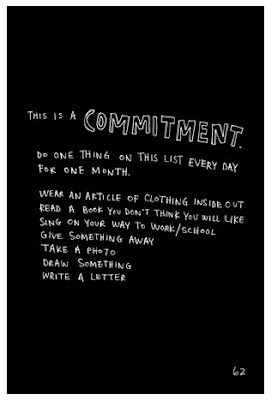 THIS IS A COMMITMENT.
DO ONE THING ON THIS LIST EVERY DAY
FOR ONE MONTH.
WEAR AN ARTICLE OF CLOTHING INSIDE OUT
READ A BOOK YOU DON'T THINK YOU WILL LIKE
SING ON YOUR WAY TO WORK/SCHOOL
GIVE SOMETHING AWAY
TAKE A PHOTO
DRAW SOMETHING
WRITE A LETTER
62